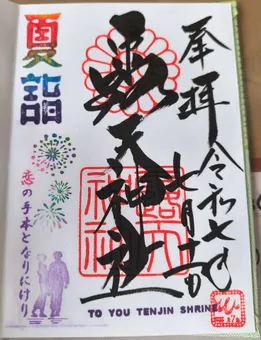 奉拝 令和七年
七月十一日
露天神社
露天神社
夏詣
恋の手本となりにけり
TO YOU TENJIN SHRINE